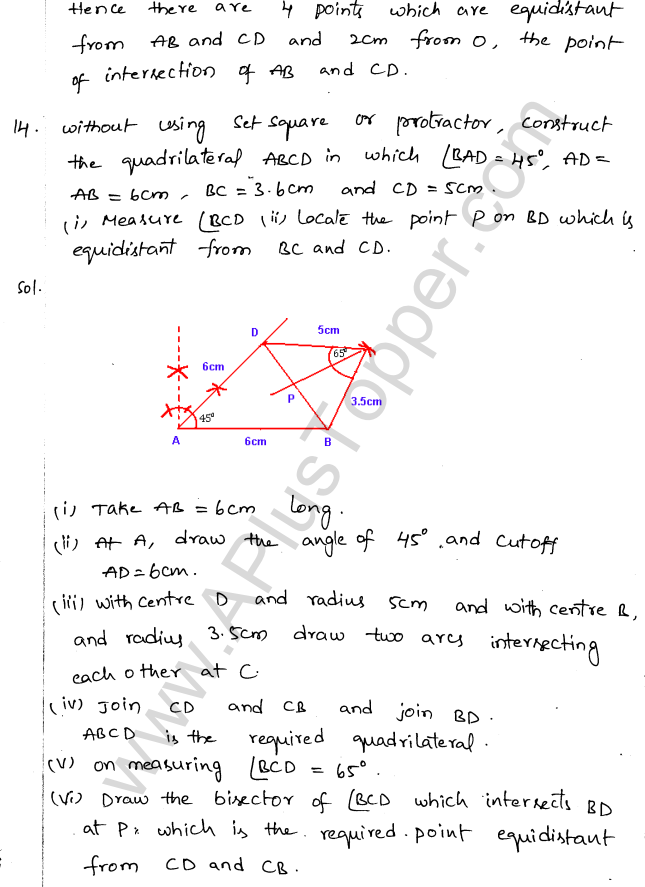 Hence there are 4 points which are equidistant
from AB and CD and 2cm from O, the point
of intersection of AB and CD.
14. without using set square or protractor, construct
the quadrilateral ABCD in which ∠BAD = 45°, AD =
AB = 6cm, BC = 3.6cm and CD = 5cm.
(i) Measure ∠BCD (ii) Locate the point P on BD which is
equidistant from BC and CD.
Sol.
D 5cm
65°
6cm
P 3.5cm
45°
A 6cm B
(i) Take AB = 6cm long.
(ii) At A, draw the angle of 45° and cutoff
AD = 6cm.
(iii) with centre D and radius 5cm and with centre B,
and radius 3.5cm draw two arcs intersecting
each other at C.
(iv) Join CD and CB and join BD.
ABCD is the required quadrilateral.
(v) on measuring ∠BCD = 65°.
(vi) Draw the bisector of ∠BCD which intersects BD
at P. which is the required point equidistant
from CD and CB.
www.APlusTopper.com